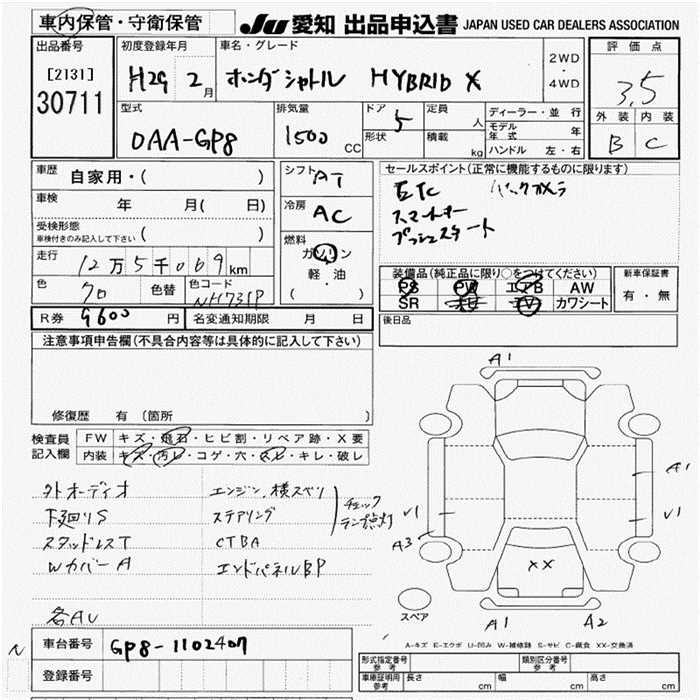 車内保管・守衛保管
JU 愛知 出品申込書 JAPAN USED CAR DEALERS ASSOCIATION
出品番号
[2131]
30711
初度登録年月
H29 2月
車名・グレード
ホンダ シャトル HYBRID X
2WD
・
4WD
評価点
3.5
外装 内装
B C
型式
DAA-GP8
排気量
1500 CC
ドア 5
形状
定員 人
積載 kg
ディーラー・並行
モデル年式 年
ハンドル 左・右
車歴 自家用・( )
車検 年 月( 日)
受検形態
車検付きのみ記入して下さい ( )
走行 12万5千069km
色 クロ
色替
色コード NH731P
シフト AT
冷房 AC
燃料
ガソリン
軽・油
( )
セールスポイント(正常に機能するものに限ります)
ETC バックカメラ
スマートキー
プッシュスタート
装備品(純正品に限り○をつけてください)
PS PW エアB AW
SR TV カワシート
新車保証書
有・無
R券 9600円
名変通知期限 月 日
後日品
注意事項申告欄(不具合内容等は具体的に記入して下さい)
修復歴 有(箇所 )
検査員記入欄
FW キズ・飛石・ヒビ割・リペア跡・X要
内装 キズ・汚レ・コゲ・穴・スレ・キレ・破レ
外オーディオ
下廻りS
スタッドレスT
WカバーA
各AU
エンジン、横スベリ
ステアリング
CTBA
チェックランプ点灯
エンドパネルBP
A1
A1
V1
V1
A3
XX
A1
A2
スペア
A-キズ E-エクボ U-凹み W-補修跡 S-サビ C-腐食 XX-交換済
N
車台番号 GP8-1102407
登録番号
形式指定番号 参考
類別区分番号 参考
車庫証明用参考 長さ cm 幅 cm 高さ cm